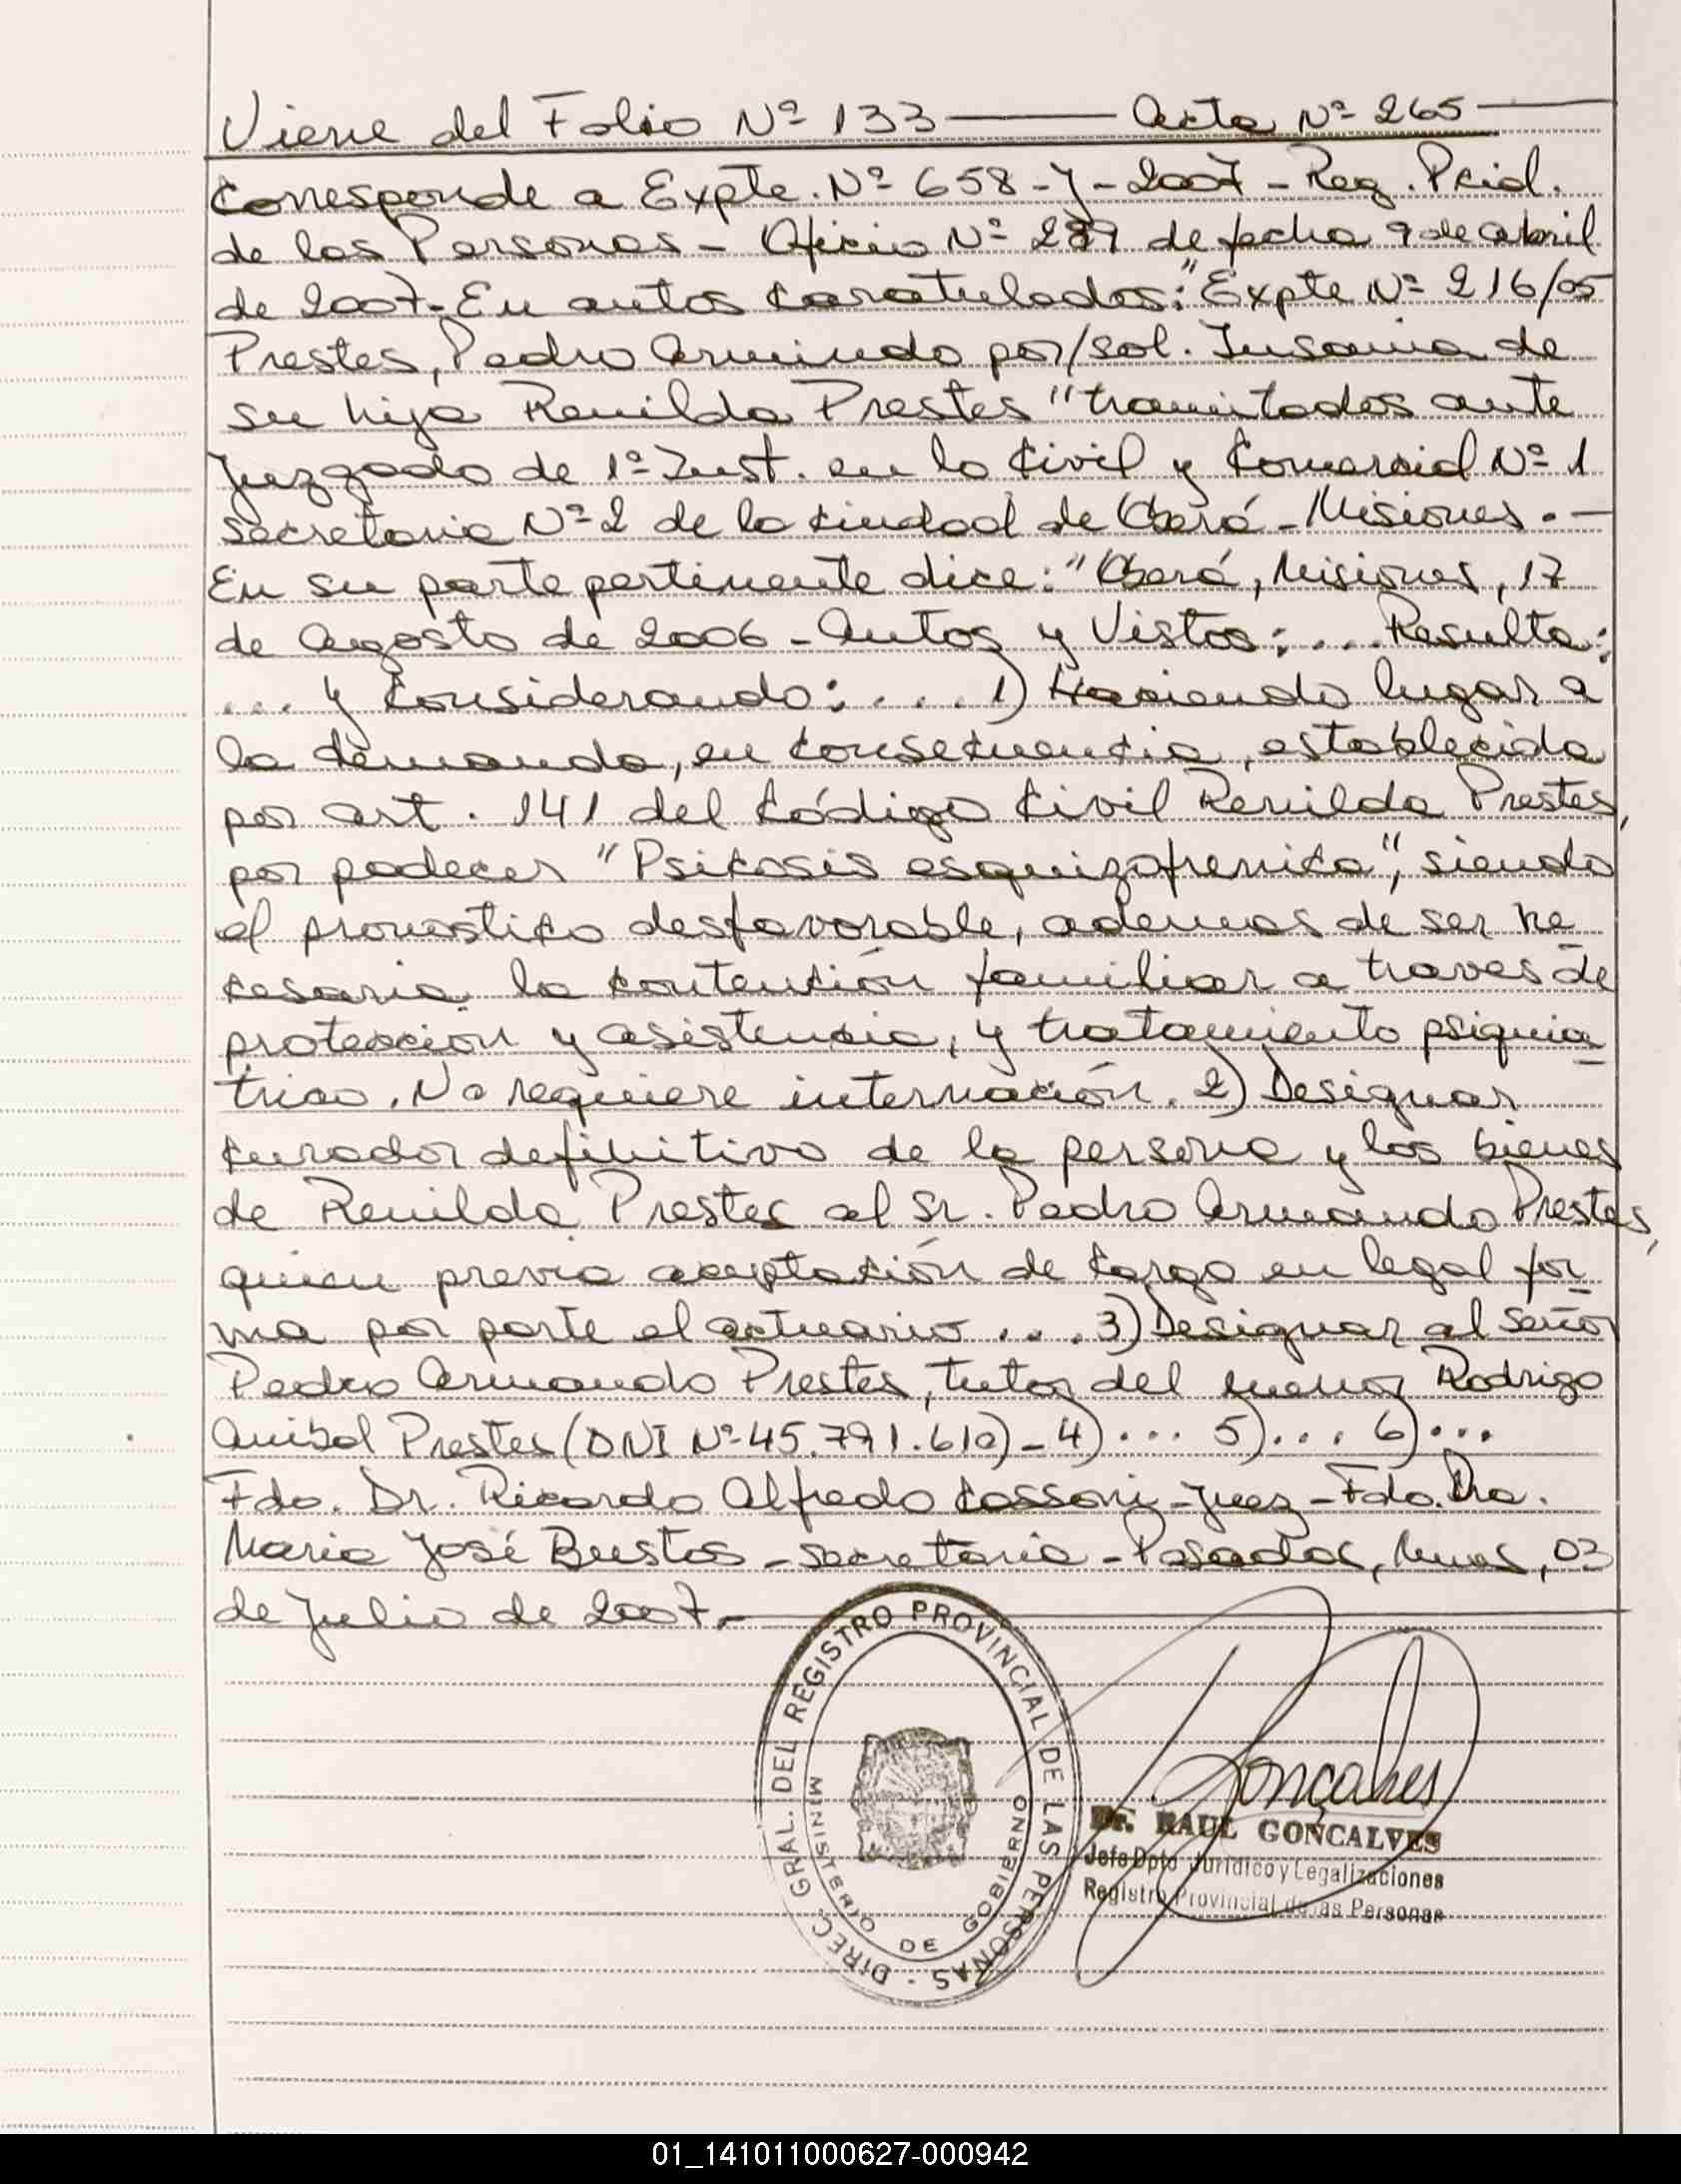 Viene del Folio Nº 133 — Acta Nº 265 —
Corresponde a Expte. Nº 658-J-2007 - Reg. Pcial.
de las Personas - Oficio Nº 289 de fecha 9 de abril
de 2007- En autos caratulados: "Expte Nº 216/05
Prestes, Pedro Armindo por/sol. Insania de
su hija Renilda Prestes" tramitados ante
Juzgado de 1º Inst. en lo Civil y Comercial Nº 1
secretaria Nº 2 de la ciudad de Oberá - Misiones. -
En su parte pertinente dice: "Oberá, Misiones, 17
de Agosto de 2006 - Autos y Vistos: ... Resulta:
... y Considerando: .... 1) Haciendo lugar a
la demanda, en consecuencia, establecida
por art. 141 del Código Civil Renilda Prestes,
por padecer "Psicosis esquizofrenica", siendo
el pronostico desfavorable, ademas de ser ne
cesaria la contención familiar a traves de
protección y asistencia, y tratamiento psiquia-
trico. No requiere internación. 2) Designar
curador definitivo de la persona y los bienes
de Renilda Prestes al Sr. Pedro Armando Prestes,
quien previa aceptación de cargo en legal for
ma por parte el actuario .... 3) Designar al Señor
Pedro Armando Prestes, tutor del menor Rodrigo
Anibal Prestes (DNI Nº 45.791.610) - 4) ... 5) ... 6) ...
Fdo. Dr. Ricardo Alfredo Cassoni - Juez - Fdo. Dra.
Maria José Bustos - secretaria - Posadas, Mnes, 03
de Julio de 2007.-
DIRECC. GRAL. DEL REGISTRO PROVINCIAL DE LAS PERSONAS
MINISTERIO DE GOBIERNO
Goncalves
Dr. RAUL GONCALVES
Jefe Dpto Jurídico y Legalizaciones
Registro Provincial de las Personas
01_141011000627-000942